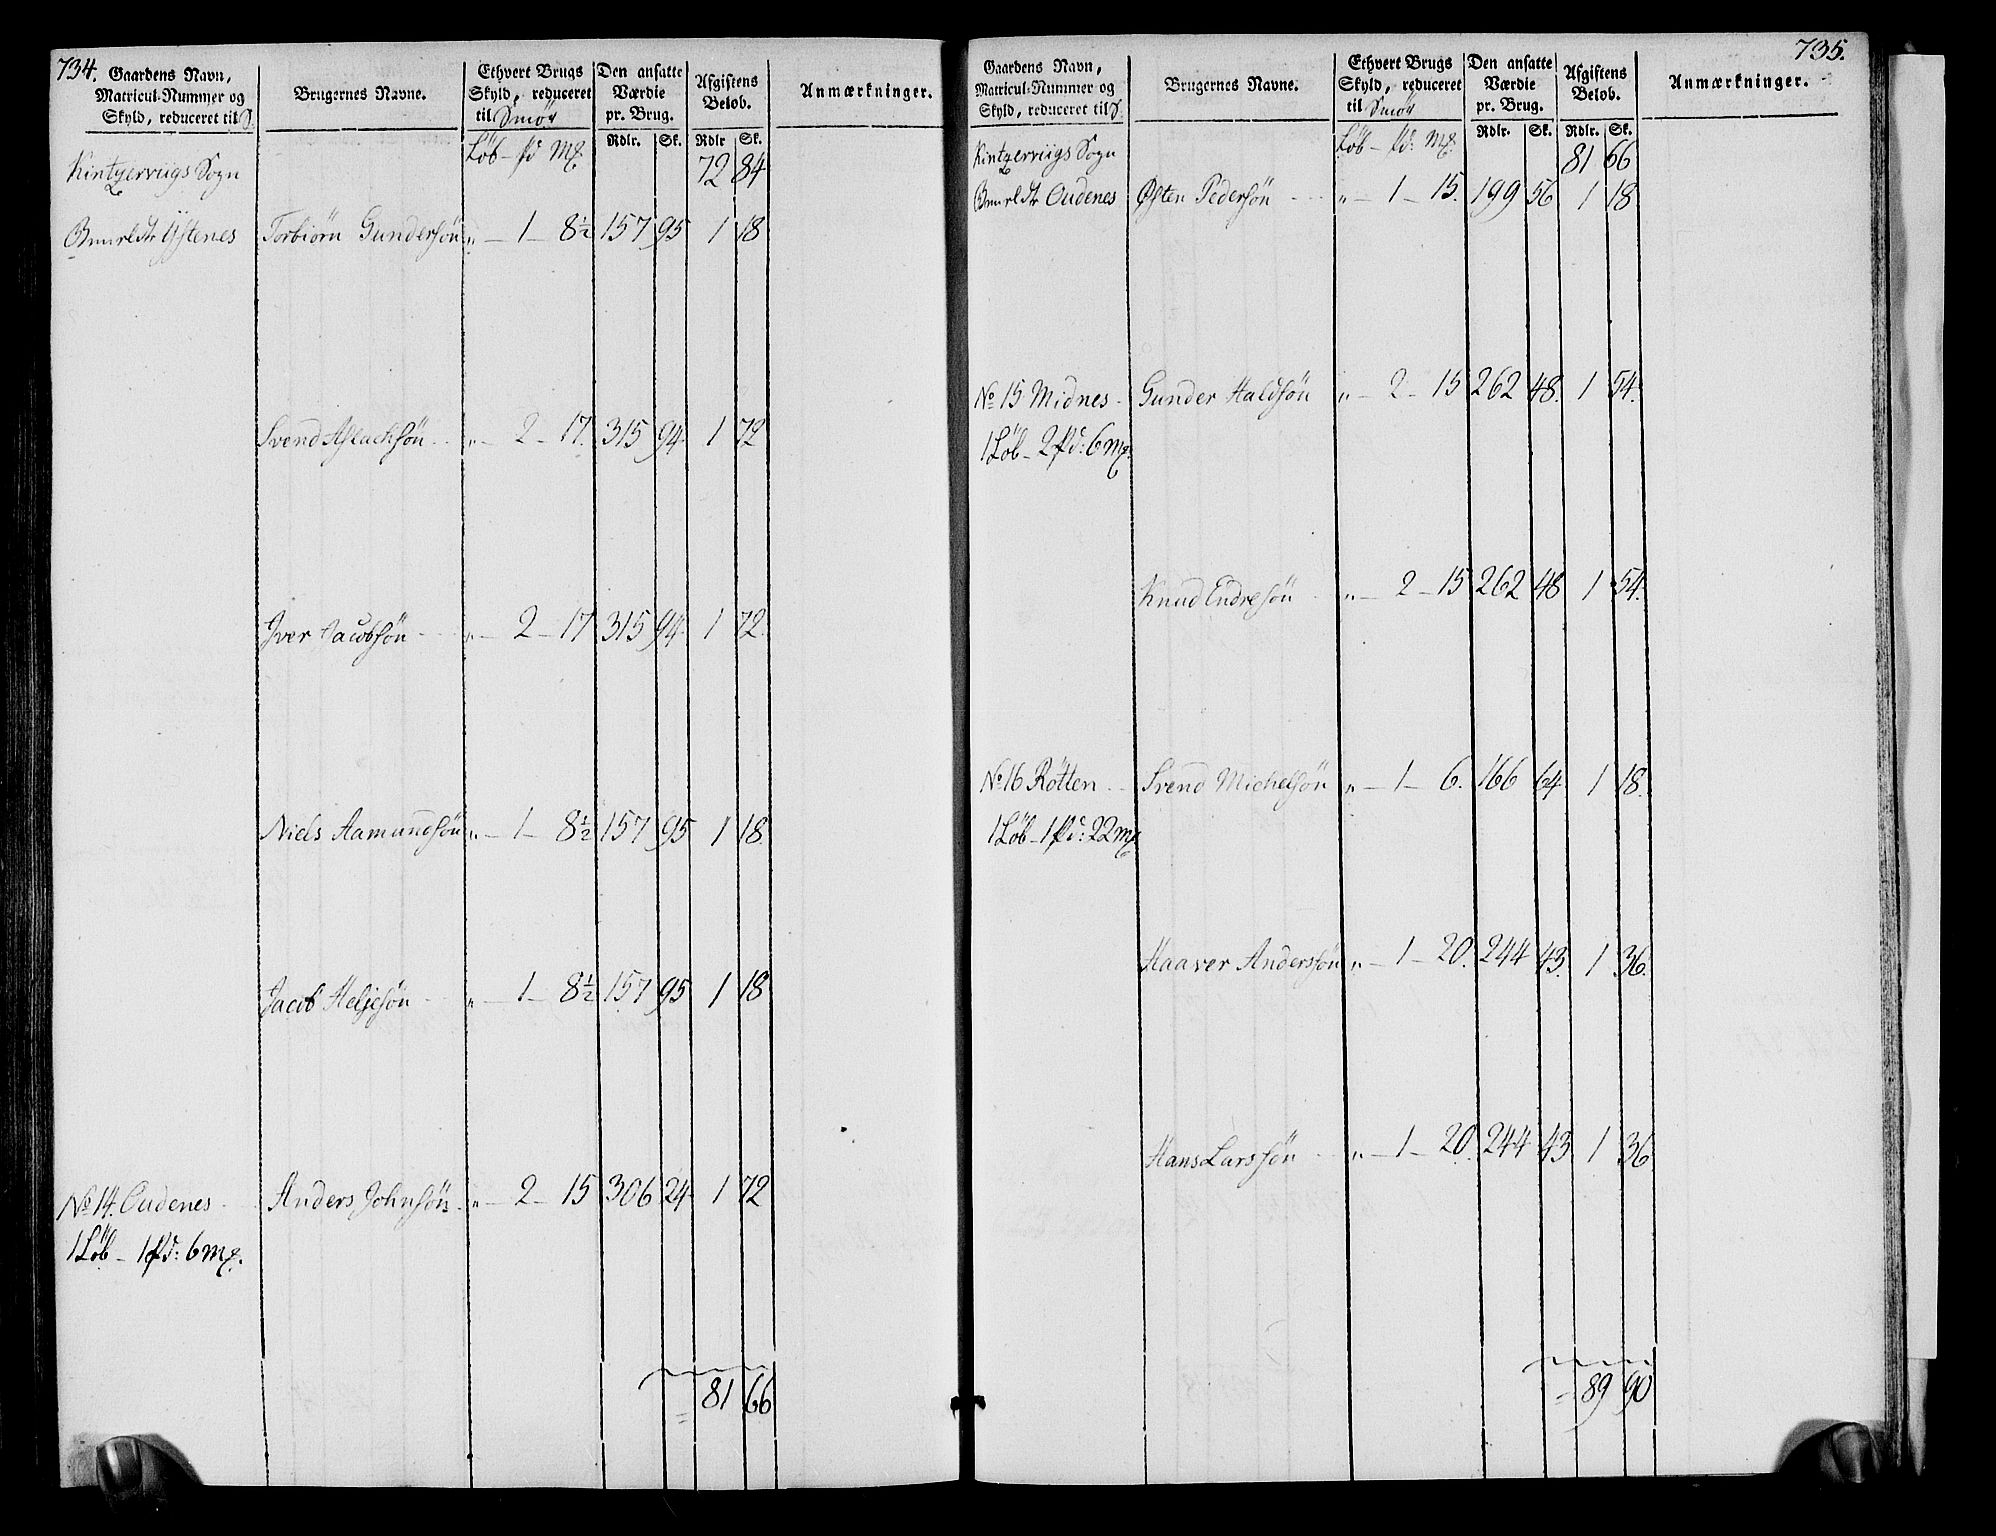 734.
Gaardens Navn,
Matricul-Nummer og
Skyld, reduceret til S.
Brugernes Navne.
Ethvert Brugs
Skyld, reduceret
til Smör
Den ansatte
Værdie
pr. Brug.
Afgiftens
Beløb.
Anmærkninger.
Løb - Pd Mg
Rdlr. Sk. Rdlr Sk.
Kintzerviigs Sogn 72 84
Ystenes Torbiörn Gundersön „ - 1 - 8½ 157 95 1 18
Svend Aslachsön „ - 2 - 17. 315 94 1 72
Iver Jacobsön „ - 2 - 17 315 94 1 72.
Niels Aamundsön „ - 1 - 8½ 157 95 1 18.
Jacob Heljesön „ - 1 - 8½ 157 95 1 18
No 14. Oudenes Anders Johnsön „ - 2 - 15 306 24 1 72
1 Løb - 1 Pd: 6 Mg.
= 81 66
735.
Gaardens Navn,
Matricul-Nummer og
Skyld, reduceret til S.
Brugernes Navne.
Ethvert Brugs
Skyld, reduceret
til Smör
Den ansatte
Værdie
pr. Brug.
Afgiftens
Beløb.
Anmærkninger.
Løb - Pd: Mg.
Rdlr. Sk. Rdlr. Sk.
Kintzerviigs Sogn 81 66
Oudenes Østen Pedersön „ - 1 - 15. 199 56 1 18
No 15 Midnes Gunder Haldsön „ - 2 - 15 262 48. 1 54.
1 Løb - 2 Pd: 6 Mg.
Knud Endresön „ - 2 - 15 262 48 1 54.
No 16 Rötten Svend Michelsön „ - 1 - 6. 166 64. 1 18.
1 Løb - 1 Pd: 22 Mg
Haaver Andersön „ - 1 - 20. 244 43. 1 36.
Hans Larssön „ - 1 - 20. 244 43 1 36
= 89 90